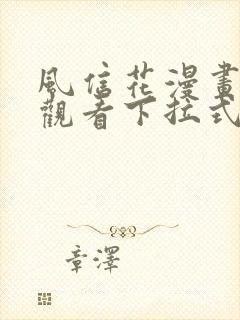 風信花漫畫
觀看下拉式
章澤